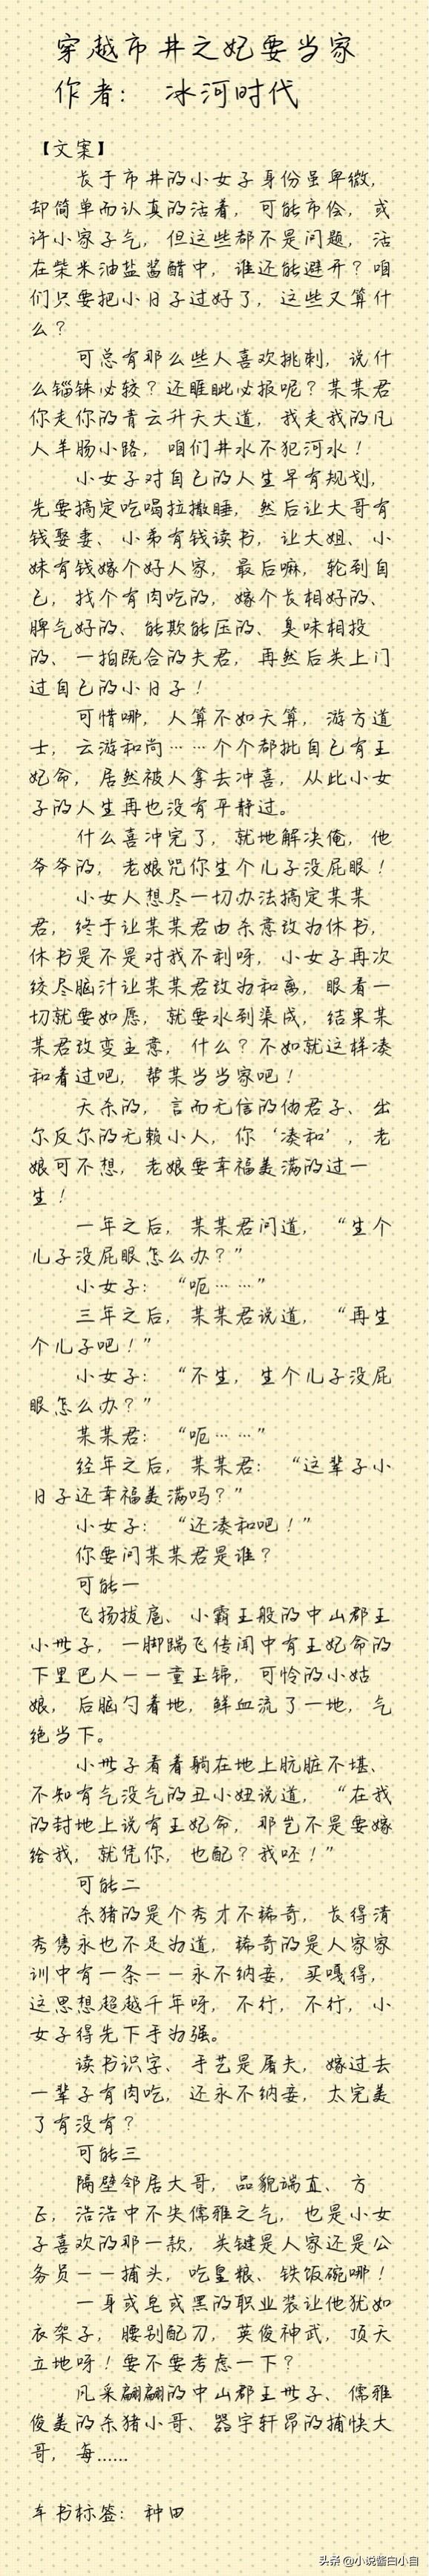 穿越市井之妃要当家
作者： 冰河时代
【文案】
长于市井的小女子身份虽卑微，
却简单而认真的活着，可能市侩，或
许小家子气，但这些都不是问题，活
在柴米油盐酱醋中，谁还能避开？咱
们只要把小日子过好了，这些又算什
么？
可总有那么些人喜欢挑刺，说什
么锱铢必较？还睚眦必报呢？某某君
你走你的青云升天大道，我走我的凡
人羊肠小路，咱们井水不犯河水！
小女子对自己的人生早有规划，
先要搞定吃喝拉撒睡，然后让大哥有
钱娶妻、小弟有钱读书，让大姐、小
妹有钱嫁个好人家，最后嘛，轮到自
己，找个有肉吃的，嫁个长相好的、
脾气好的、能欺能压的、臭味相投
的、一拍既合的夫君，再然后关上门
过自己的小日子！
可惜哪，人算不如天算，游方道
士，云游和尚……个个都批自己有王
妃命，居然被人拿去冲喜，从此小女
子的人生再也没有平静过。
什么喜冲完了，就地解决俺，他
爷爷的，老娘咒你生个儿子没屁眼！
小女人想尽一切办法搞定某某
君，终于让某某君由杀意改为休书，
休书是不是对我不利呀，小女子再次
绞尽脑汁让某某君改为和离，眼看一
切就要如愿，就要水到渠成，结果某
某君改变主意，什么？不如就这样凑
和着过吧，帮某当当家吧！
天杀的，言而无信的伪君子、出
尔反尔的无赖小人，你‘凑和’，老
娘可不想，老娘要幸福美满的过一
生！
一年之后，某某君问道，“生个
儿子没屁眼怎么办？”
小女子：“呃……”
三年之后，某某君说道，“再生
个儿子吧！”
小女子：“不生，生个儿子没屁
眼怎么办？”
某某君：“呃……”
经年之后，某某君：“这辈子小
日子还幸福美满吗？”
小女子：“还凑和吧！”
你要问某某君是谁？
可能一
飞扬拔扈、小霸王般的中山郡王
小世子，一脚踹飞传闻中有王妃命的
下里巴人——童玉锦，可怜的小姑
娘，后脑勺着地，鲜血流了一地，气
绝当下。
小世子看着躺在地上肮脏不堪、
不知有气没气的丑小妞说道，“在我
的封地上说有王妃命，那岂不是要嫁
给我，就凭你，也配？我呸！”
可能二
杀猪的是个秀才不稀奇，长得清
秀隽永也不足为道，稀奇的是人家家
训中有一条——永不纳妾，买嘎得，
这思想超越千年呀，不行，不行，小
女子得先下手为强。
读书识字、手艺是屠夫，嫁过去
一辈子有肉吃，还永不纳妾，太完美
了有没有？
可能三
隔壁邻居大哥，品貌端直、方
正，浩浩中不失儒雅之气，也是小女
子喜欢的那一款，关键是人家还是公
务员——捕头，吃皇粮、铁饭碗哪！
一身或皂或黑的职业装让他犹如
衣架子，腰别配刀，英俊神武，顶天
立地呀！要不要考虑一下？
风采翩翩的中山郡王世子、儒雅
俊美的杀猪小哥、器宇轩昂的捕快大
哥，每……
本书标签：种田
头条 @小说酱白小自